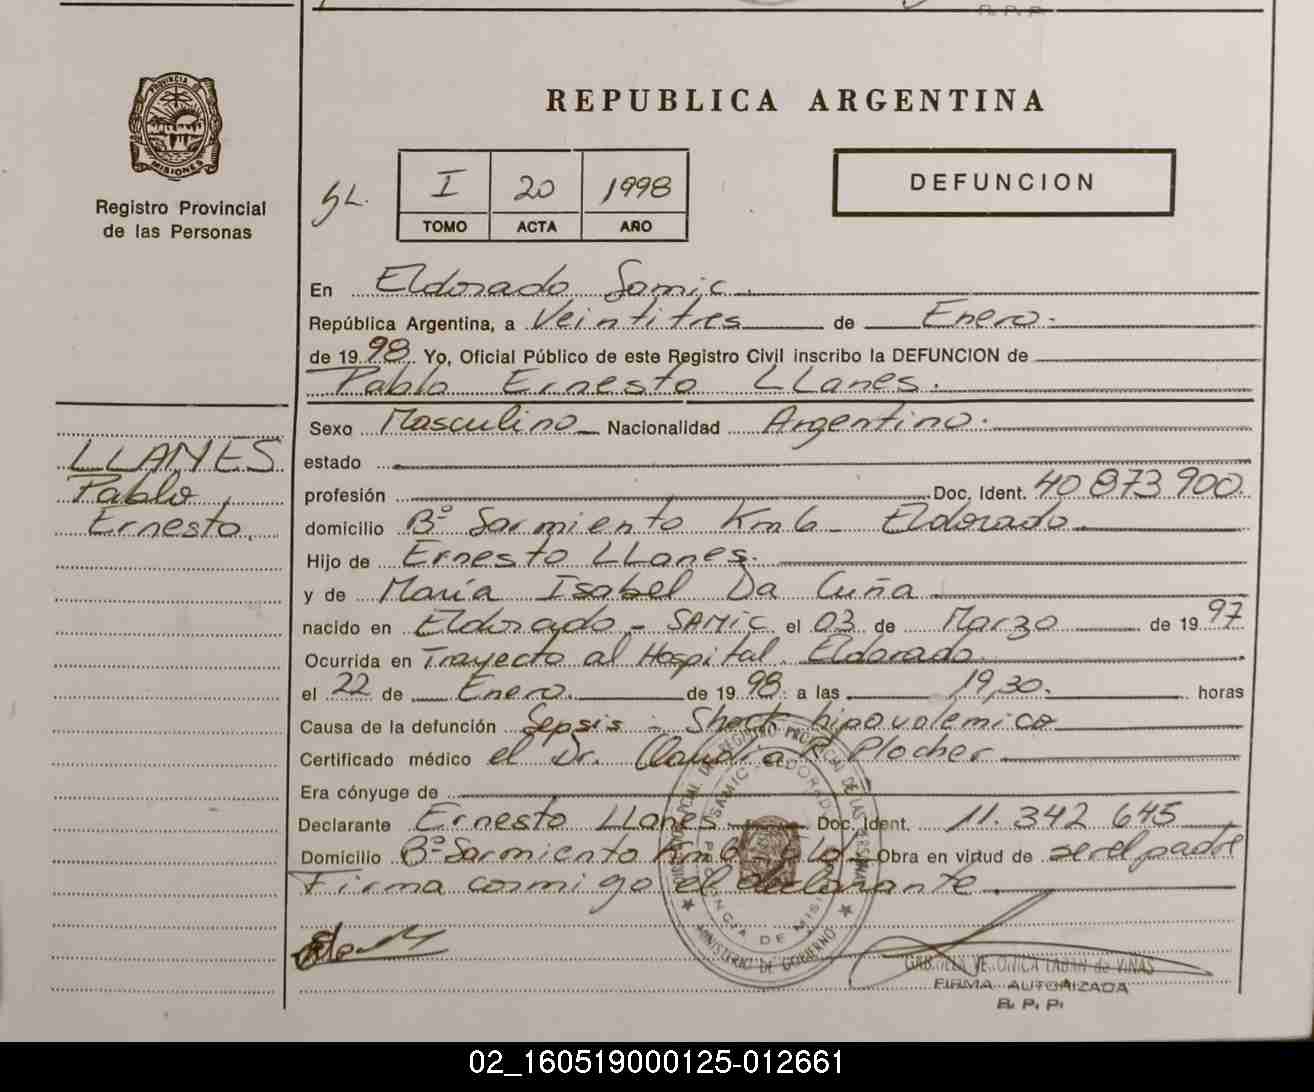 PROVINCIA
MISIONES
Registro Provincial
de las Personas
REPUBLICA ARGENTINA
I 20 1998
TOMO ACTA AÑO
DEFUNCION
En Eldorado Samic.
República Argentina, a Veintitres de Enero.
de 19 98 Yo, Oficial Público de este Registro Civil inscribo la DEFUNCION de
Pablo Ernesto LLanes.
Sexo Masculino Nacionalidad Argentino.
estado
profesión Doc. Ident. 40 873 900.
domicilio Bº Sarmiento Km 6 Eldorado.
Hijo de Ernesto LLanes.
y de María Isabel Da Cuña
nacido en Eldorado - SAMIC el 03 de Marzo de 19 97
Ocurrida en Trayecto al Hospital. Eldorado.
el 22 de Enero. de 19 98. a las 19,30. horas
Causa de la defunción Sepsis - Shock hipovolemico
Certificado médico el Dr. Claudia R. Plocher
Era cónyuge de
Declarante Ernesto LLanes Doc. Ident. 11. 342 645
Domicilio Bº Sarmiento Km 6 Eld. Obra en virtud de ser el padre
Firma conmigo el declarante.
LLANES
Pablo
Ernesto.
MINISTERIO DE GOBIERNO
PROVINCIA DE MISIONES
GABRIELA VERONICA LABAN de VIÑAS
FIRMA AUTORIZADA
R. P. P.
02_160519000125-012661